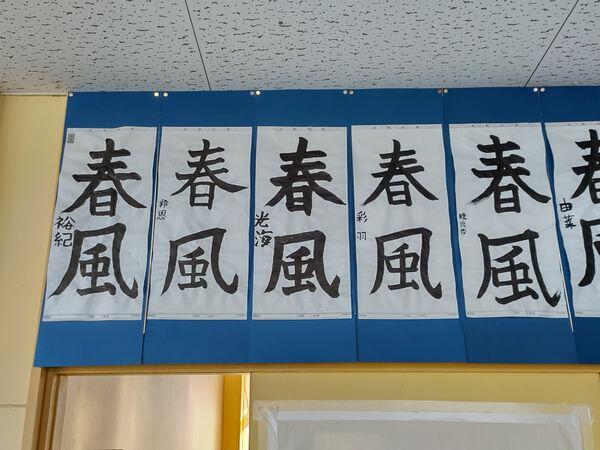 春風
裕紀
春風
鈴思
春風
光海
春風
彩羽
春風
春風
由菜